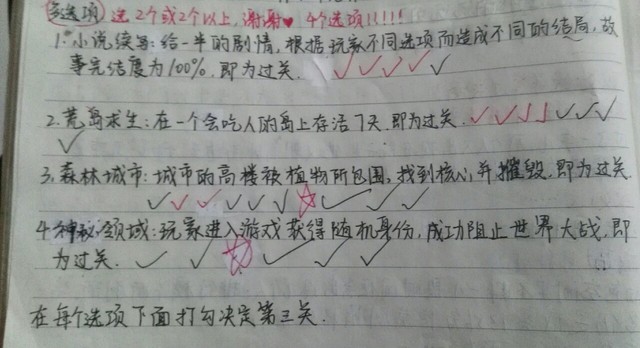 多选项 选2个或2个以上,谢谢♥ 4个选项!!!!!
1.小说续写:给一半的剧情,根据玩家不同选项而造成不同的结局,故
事完结度为100%,即为过关. ✓✓✓✓✓
2.荒岛求生:在一个会吃人的岛上存活7天.即为过关. ✓✓✓✓✓✓✓
✓
3.森林城市:城市的高楼被植物所包围,找到核心并摧毁,即为过关
✓✓✓✓✓✓☆✓✓✓
4.神秘领域:玩家进入游戏获得随机身份,成功阻止世界大战,即
为过关. ✓✓☆✓✓✓
在每个选项下面打勾决定第三关.